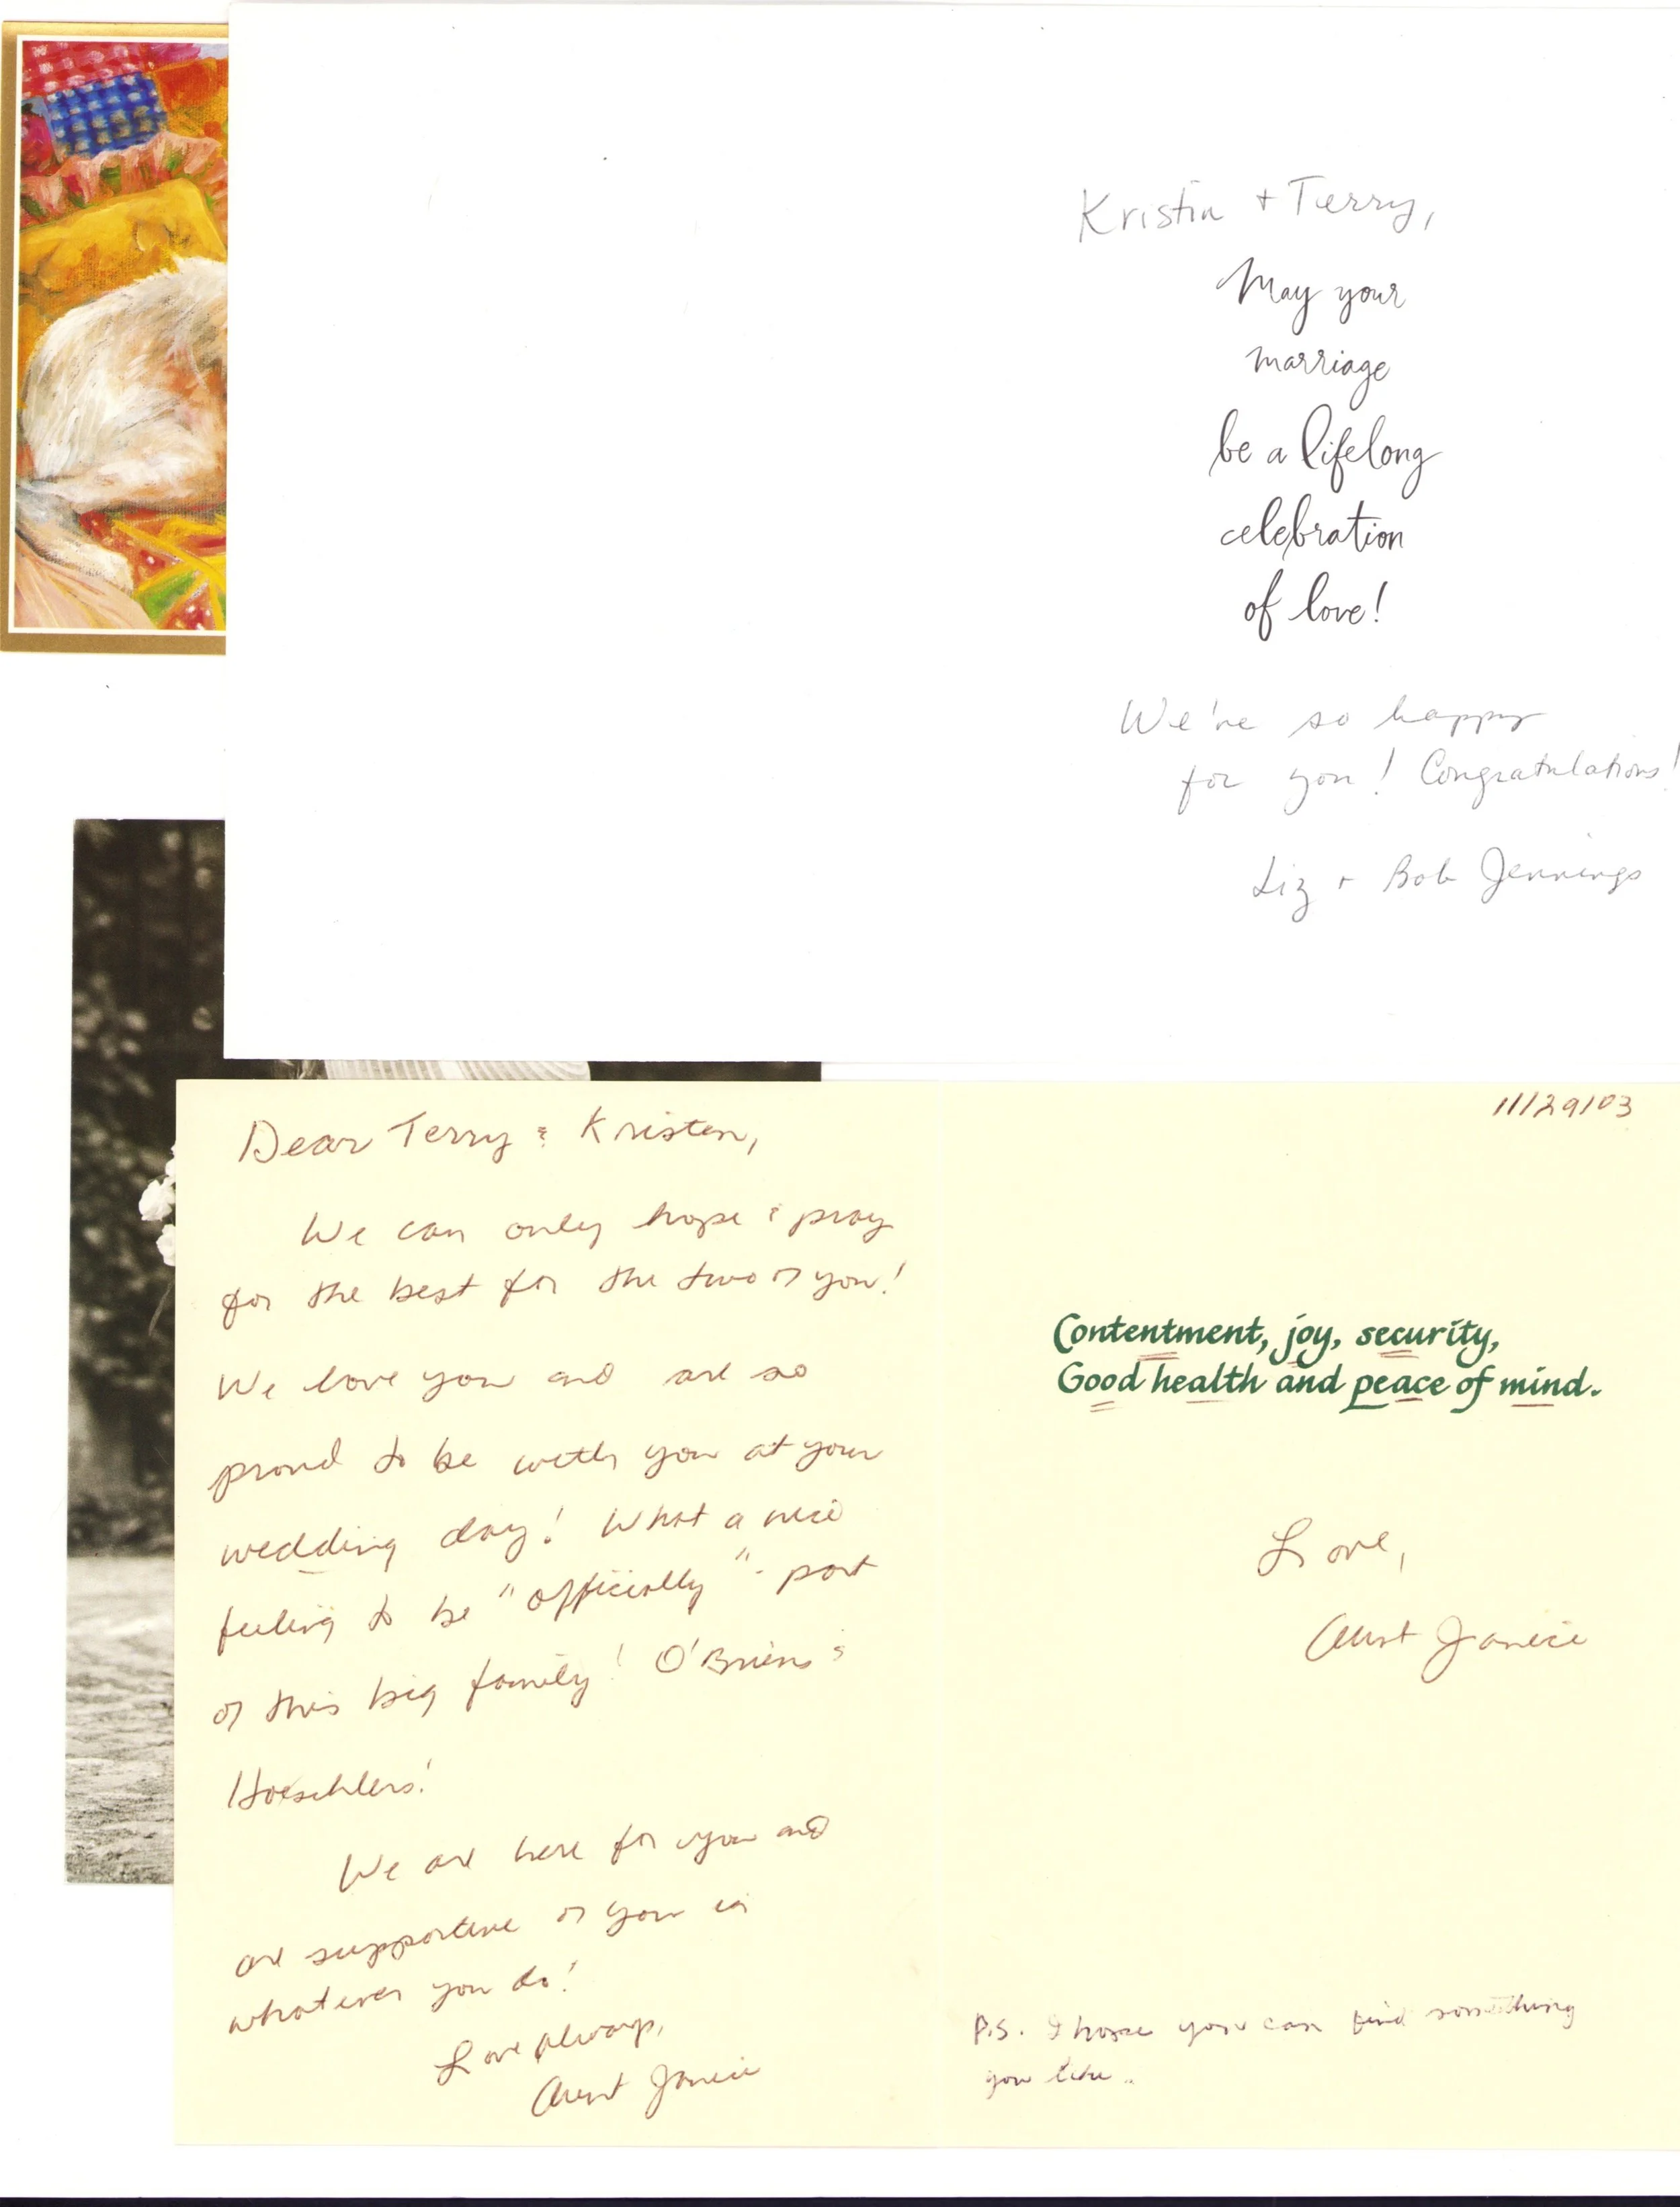 Kristin + Terry,
May your
marriage
be a lifelong
celebration
of love!
We're so happy
for you! Congratulations!
Liz + Bob Jennings
Dear Terry & Kristen,
We can only hope & pray
for the best for the two of you!
We love you and are so
proud to be with you at your
wedding day! What a nice
feeling to be "officially" - part
of this big family! O'Briens &
Hoeschlers!
We are here for you and
are supportive of you in
whatever you do!
Love always,
Aunt Janice
11/29/03
Contentment, joy, security,
Good health and peace of mind.
Love,
Aunt Janice
P.S. I hope you can find something
you like..